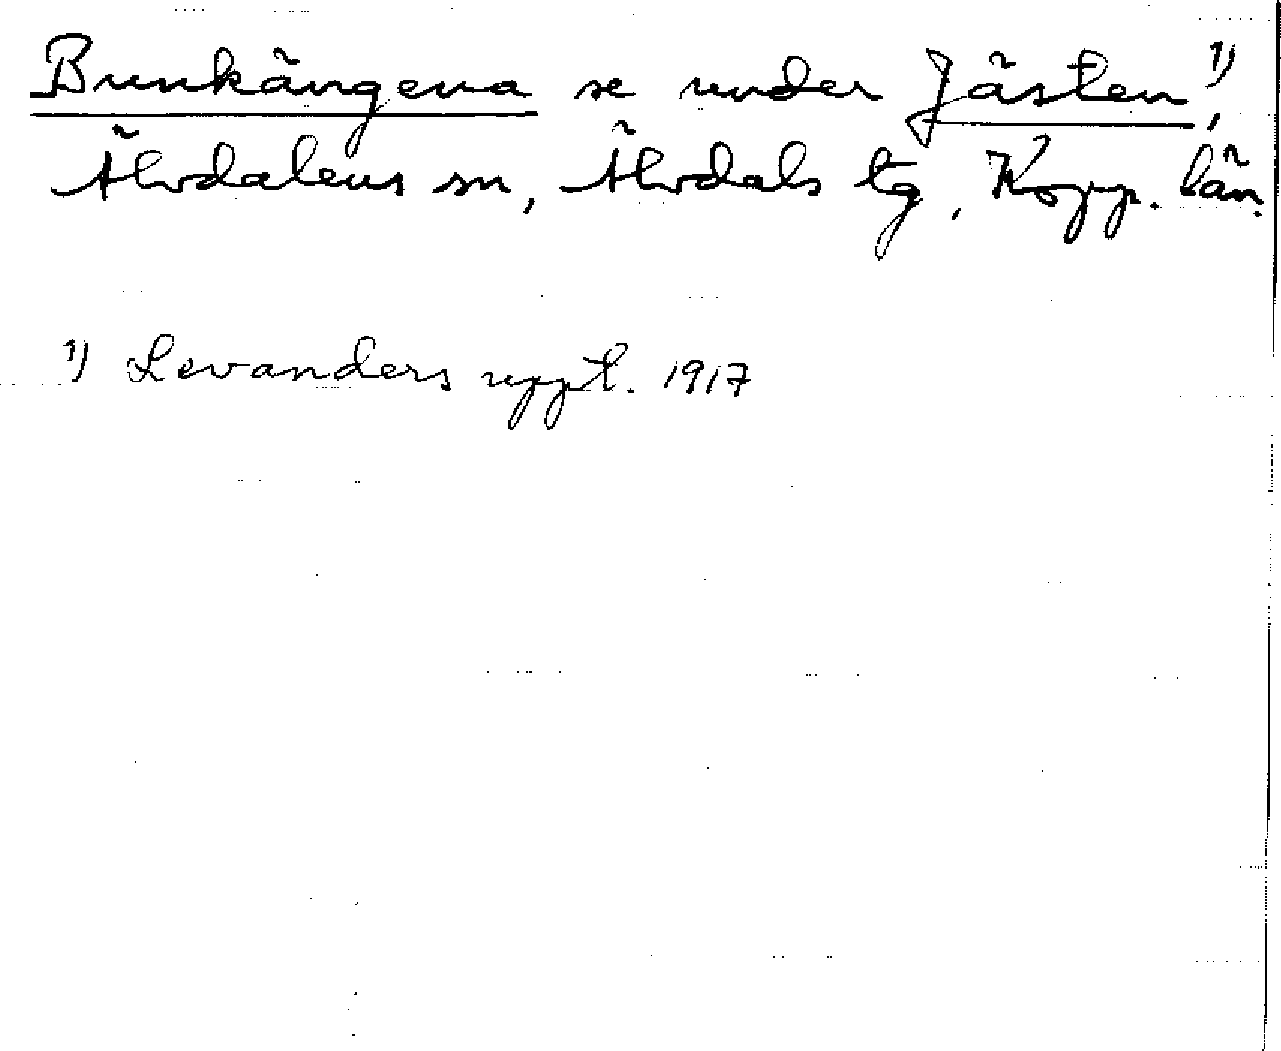 Bunkängena se under Jästen,¹⁾
Älvdalens sn, Älvdals tg, Kopp. län.
¹⁾ Levanders uppt. 1917